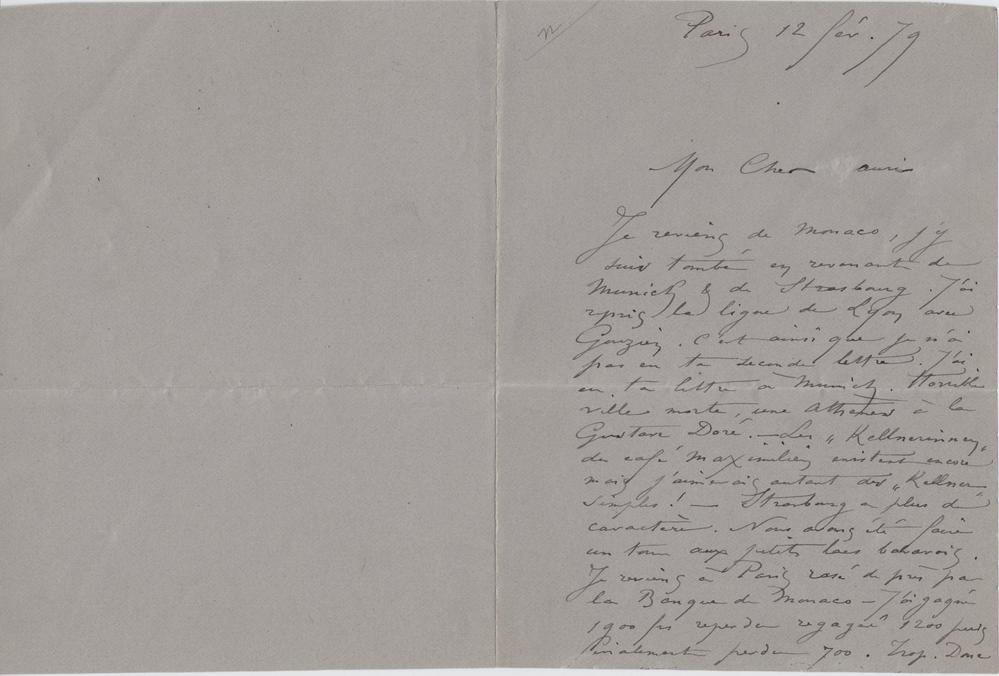 Paris 12 fév. 79
Mon Cher ami
Je reviens de Monaco, j'y
suis tombé en revenant de
Munich & de Strasbourg. J'ai
repris la ligne de Lyon avec
Gouzien. C'est ainsi que je n'ai
pas eu ta seconde lettre. J'ai
eu ta lettre à Munich. Horrible
ville morte, une Athènes à la
Gustave Doré. — Les „Kellnerinnen"
du café Maximilien existent encore
mais j'aimerais autant des „Kellner"
simples! — Strasbourg a plus de
caractère. Nous avons été faire
un tour aux petits lacs bavarois.
Je reviens à Paris rasé de près par
la Banque de Monaco — J'ai gagné
1900 frs reperdu regagné 1200 puis
finalement perdu 700. Trop. Donc